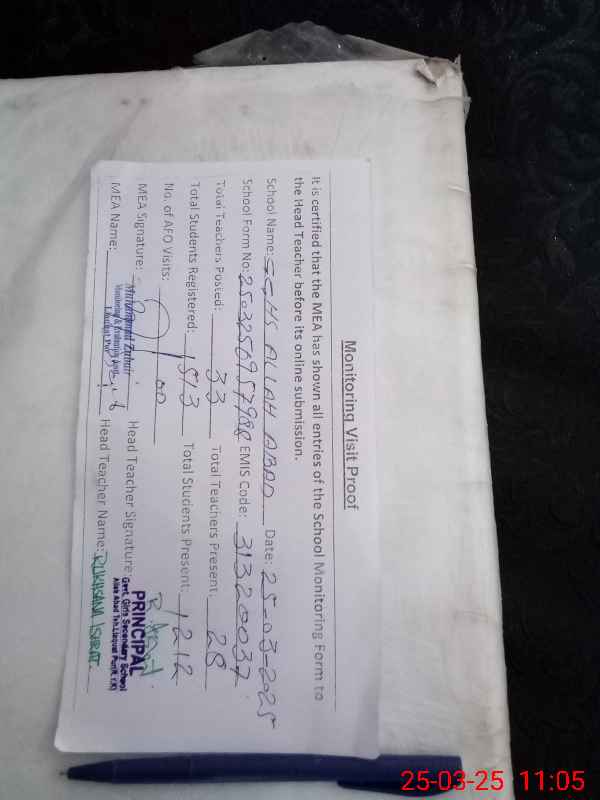 Monitoring Visit Proof
It is certified that the MEA has shown all entries of the School Monitoring Form to
the Head Teacher before its online submission.
School Name: GGHS ALLAH ABAD Date: 25-03-2025
School Form No: EMIS Code: 31320037
Total Teachers Posted: 33 Total Teachers Present: 28
Total Students Registered: 1513 Total Students Present: 1212
No. of AFO Visits: 00
MEA Signature: Head Teacher Signature:
MEA Name: Head Teacher Name: RUKHSANA ISHRAT
Muhammad Zuhair
Monitoring & Evaluation
PRINCIPAL
Govt. Girls Secondary School
Allah Abad Teh. Liaquat Pur(R.Y.K)
25-03-25 11:05